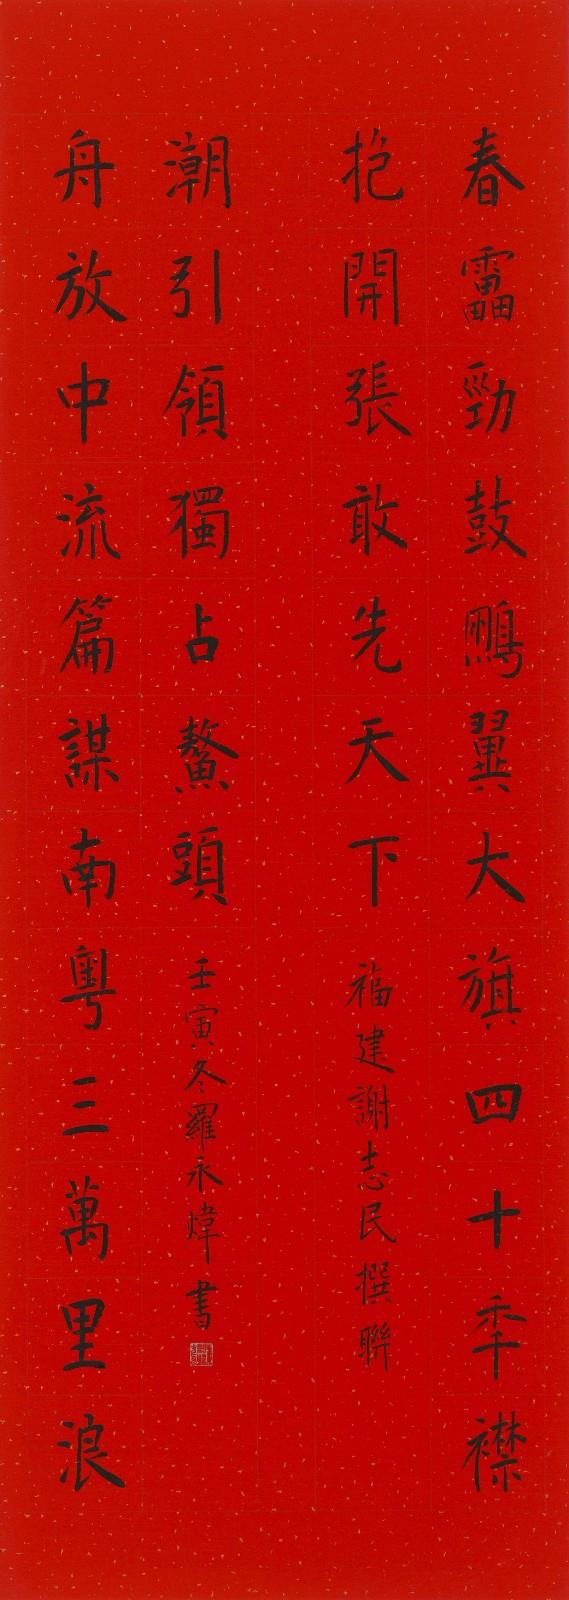 春靁勁鼓鵬翼大旗四十秊襟
抱開張敢先天下
福建謝志民撰聯
舟放中流篇謀南粵三萬里浪
潮引領獨占鰲頭
壬寅冬羅永煒書